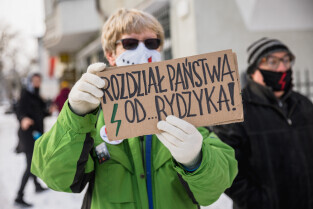 ROZDZIAŁ PAŃSTWA
OD...RYDZYKA!